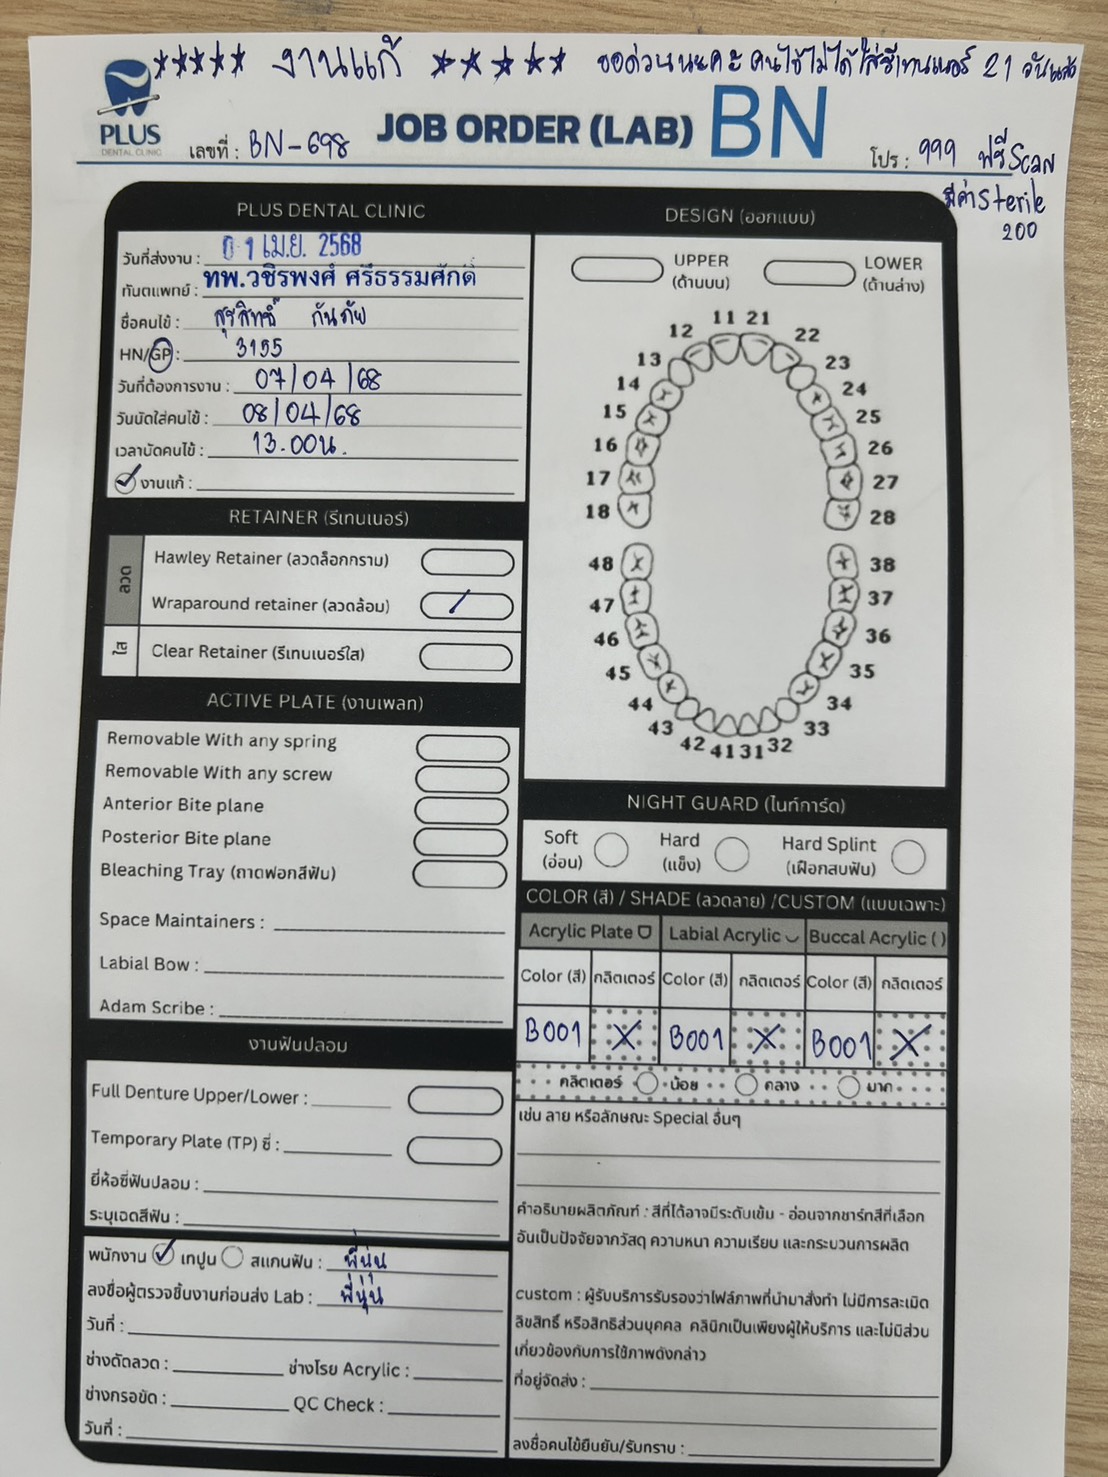 ***** งานแก้ ***** ขอด่วนนะคะ คนไข้ไม่ได้ใส่รีเทนเนอร์ 21 วันแล้ว
PLUS
DENTAL CLINIC
เลขที่ : BN-698
JOB ORDER (LAB) BN
โปร : 999 ฟรีScan
มีค่าSterile
200
PLUS DENTAL CLINIC
วันที่ส่งงาน : 01 เม.ย. 2568
ทันตแพทย์ : ทพ.วชิรพงศ์ ศรีธรรมศักดิ์
ชื่อคนไข้ : สุรสิทธิ์ กันภัย
HN/GP : 3155
วันที่ต้องการงาน : 07/04/68
วันนัดใส่คนไข้ : 08/04/68
เวลานัดคนไข้ : 13.00น.
งานแก้ :
RETAINER (รีเทนเนอร์)
ลวด
Hawley Retainer (ลวดล็อกกราม)
Wraparound retainer (ลวดล้อม)
ใส
Clear Retainer (รีเทนเนอร์ใส)
ACTIVE PLATE (งานเพลท)
Removable With any spring
Removable With any screw
Anterior Bite plane
Posterior Bite plane
Bleaching Tray (ถาดฟอกสีฟัน)
Space Maintainers :
Labial Bow :
Adam Scribe :
งานฟันปลอม
Full Denture Upper/Lower :
Temporary Plate (TP) ซี่ :
ยี่ห้อซี่ฟันปลอม :
ระบุเฉดสีฟัน :
พนักงาน เทปูน สแกนฟัน : พี่นุ่น
ลงชื่อผู้ตรวจชิ้นงานก่อนส่ง Lab : พี่นุ่น
วันที่ :
ช่างดัดลวด : ช่างโรย Acrylic :
ช่างกรอขัด : QC Check :
วันที่ :
DESIGN (ออกแบบ)
UPPER
(ด้านบน)
LOWER
(ด้านล่าง)
11 21
12 22
13 23
14 24
15 25
16 26
17 27
18 28
48 38
47 37
46 36
45 35
44 34
43 33
42 41 31 32
NIGHT GUARD (ไนท์การ์ด)
Soft
(อ่อน)
Hard
(แข็ง)
Hard Splint
(เฝือกสบฟัน)
COLOR (สี) / SHADE (ลวดลาย) /CUSTOM (แบบเฉพาะ)
Acrylic Plate Labial Acrylic Buccal Acrylic ( )
Color (สี) กลิตเตอร์ Color (สี) กลิตเตอร์ Color (สี) กลิตเตอร์
B001 X B001 X B001 X
กลิตเตอร์ น้อย กลาง มาก
เช่น ลาย หรือลักษณะ Special อื่นๆ
คำอธิบายผลิตภัณฑ์ : สีที่ได้อาจมีระดับเข้ม - อ่อนจากชาร์ทสีที่เลือก
อันเป็นปัจจัยจากวัสดุ ความหนา ความเรียบ และกระบวนการผลิต
custom : ผู้รับบริการรับรองว่าไฟล์ภาพที่นำมาสั่งทำ ไม่มีการละเมิด
ลิขสิทธิ์ หรือสิทธิส่วนบุคคล คลินิกเป็นเพียงผู้ให้บริการ และไม่มีส่วน
เกี่ยวข้องกับการใช้ภาพดังกล่าว
ที่อยู่จัดส่ง :
ลงชื่อคนไข้ยืนยัน/รับทราบ :